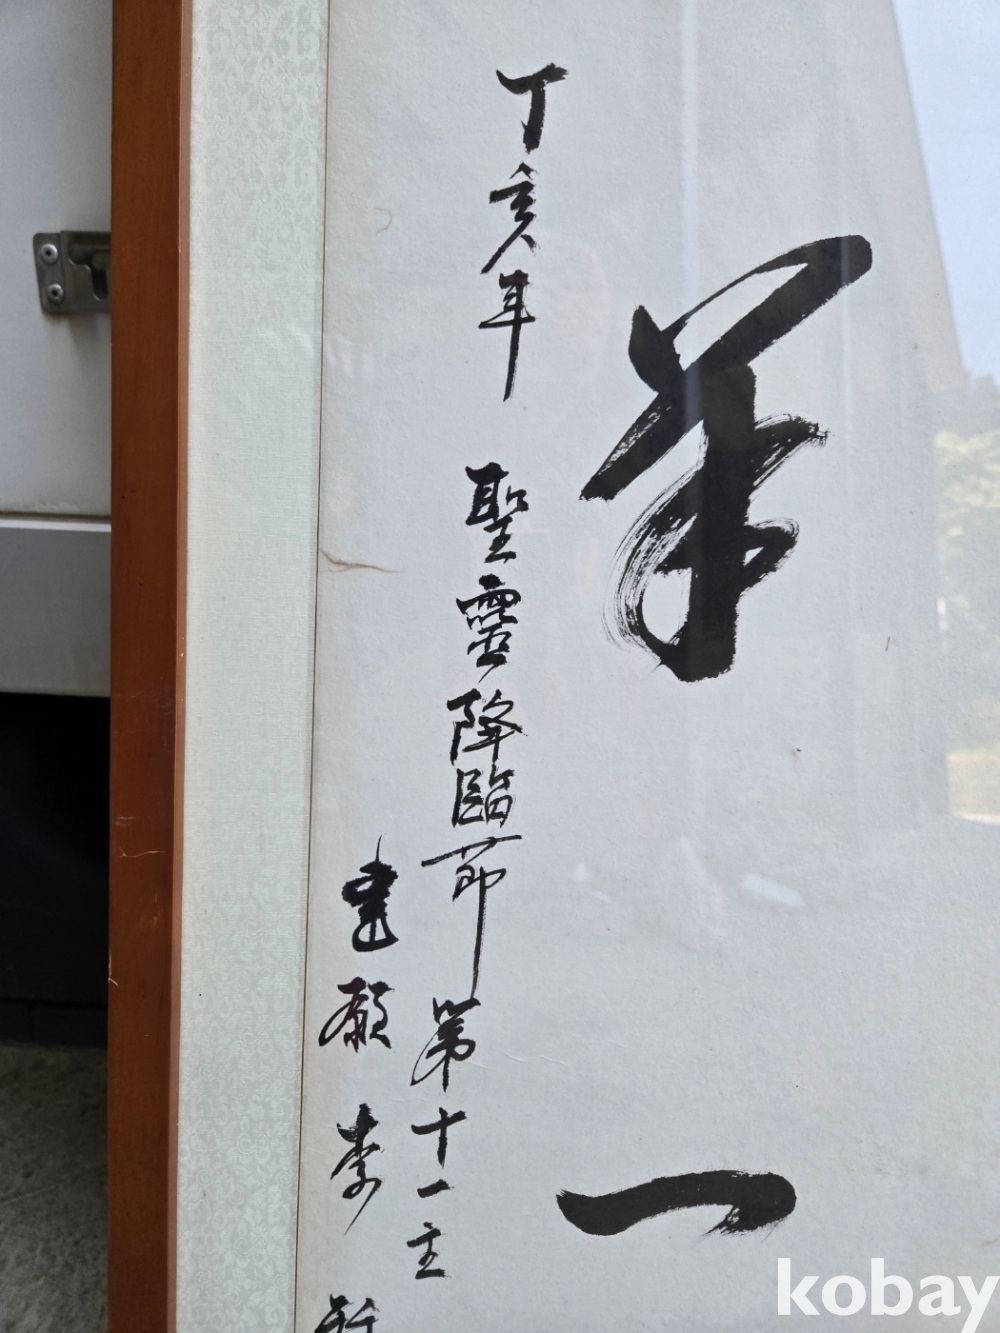 一
丁亥年 聖靈降臨節 第十一主
李
kobay